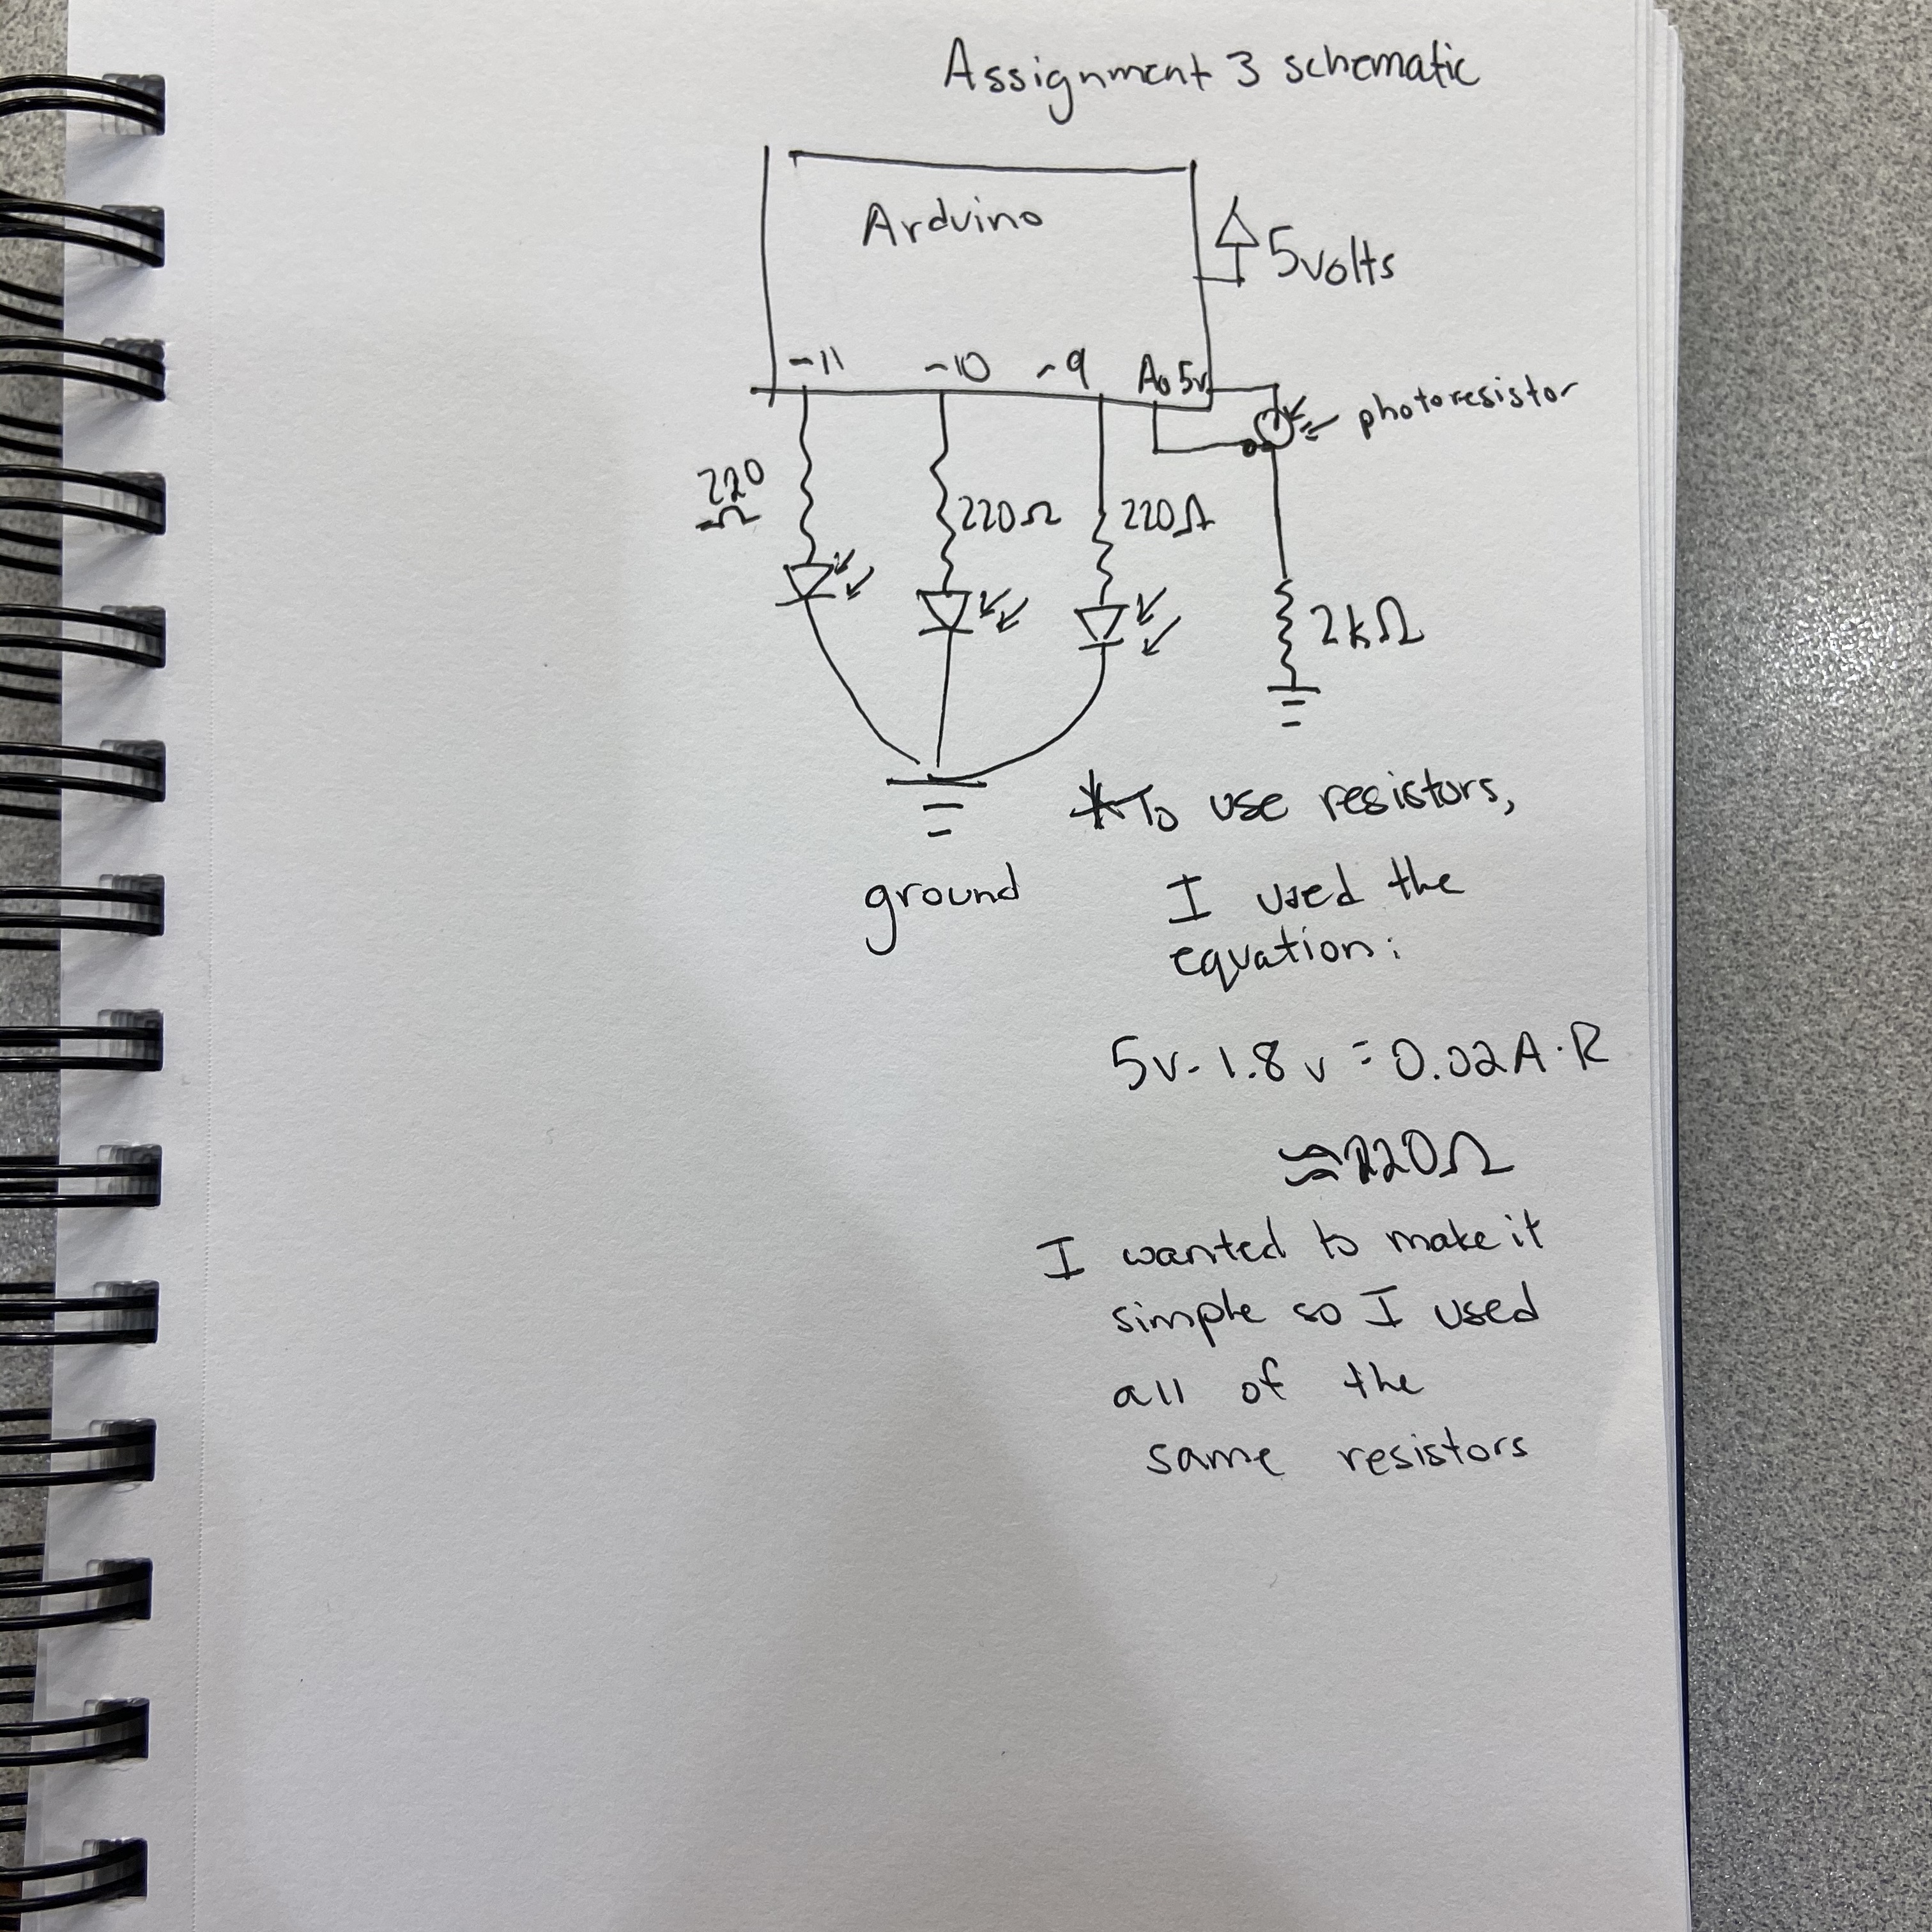 Assignment 3 schematic
Arduino
5volts
~11 ~10 ~9 A0 5v
photoresistor
220
Ω
220Ω
220Ω
2kΩ
ground
*To use resistors,
I used the
equation:
5v-1.8v = 0.02A·R
≈220Ω
I wanted to make it
simple so I used
all of the
same resistors